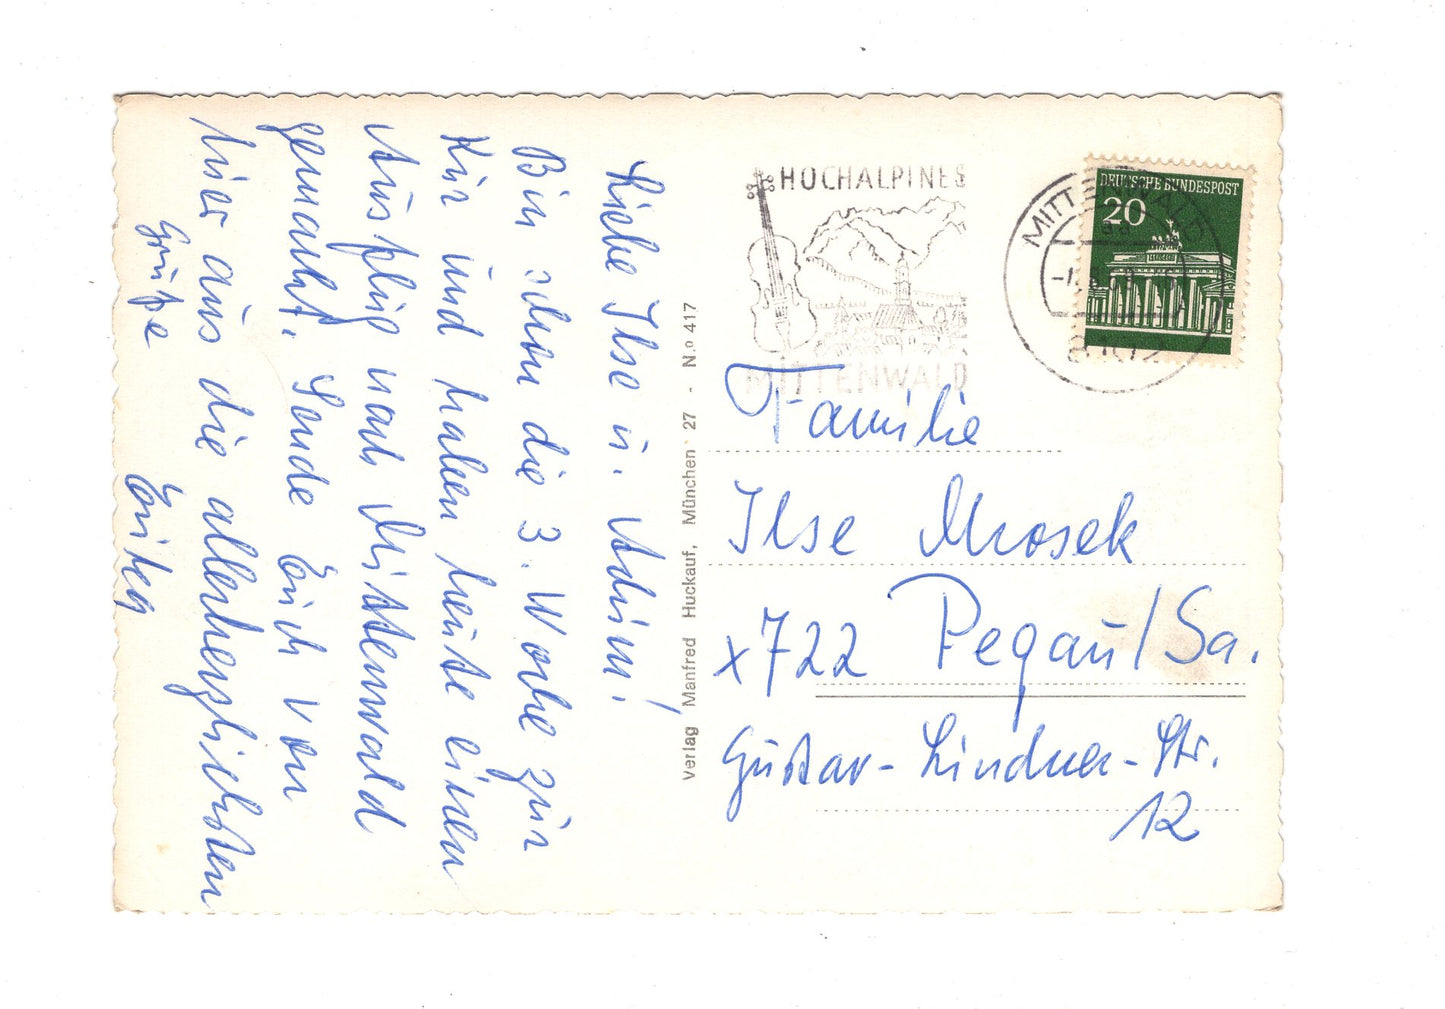 Liebe Ilse u. Achim!
Bin schon die 3. Woche zur
Kur und haben heute einen
Ausflug nach Mittenwald
gemacht. Sende Euch von
hier aus die allerherzlichsten
Grüße
Verlag Manfred Huckauf, München 27 - N.o 417
HOCHALPINES
MITTENWALD
MITTENWALD
8102
DEUTSCHE BUNDESPOST
20
Familie
Ilse Mrosek
x722 Pegau/Sa.
Gustav-Lindner-Str.
12